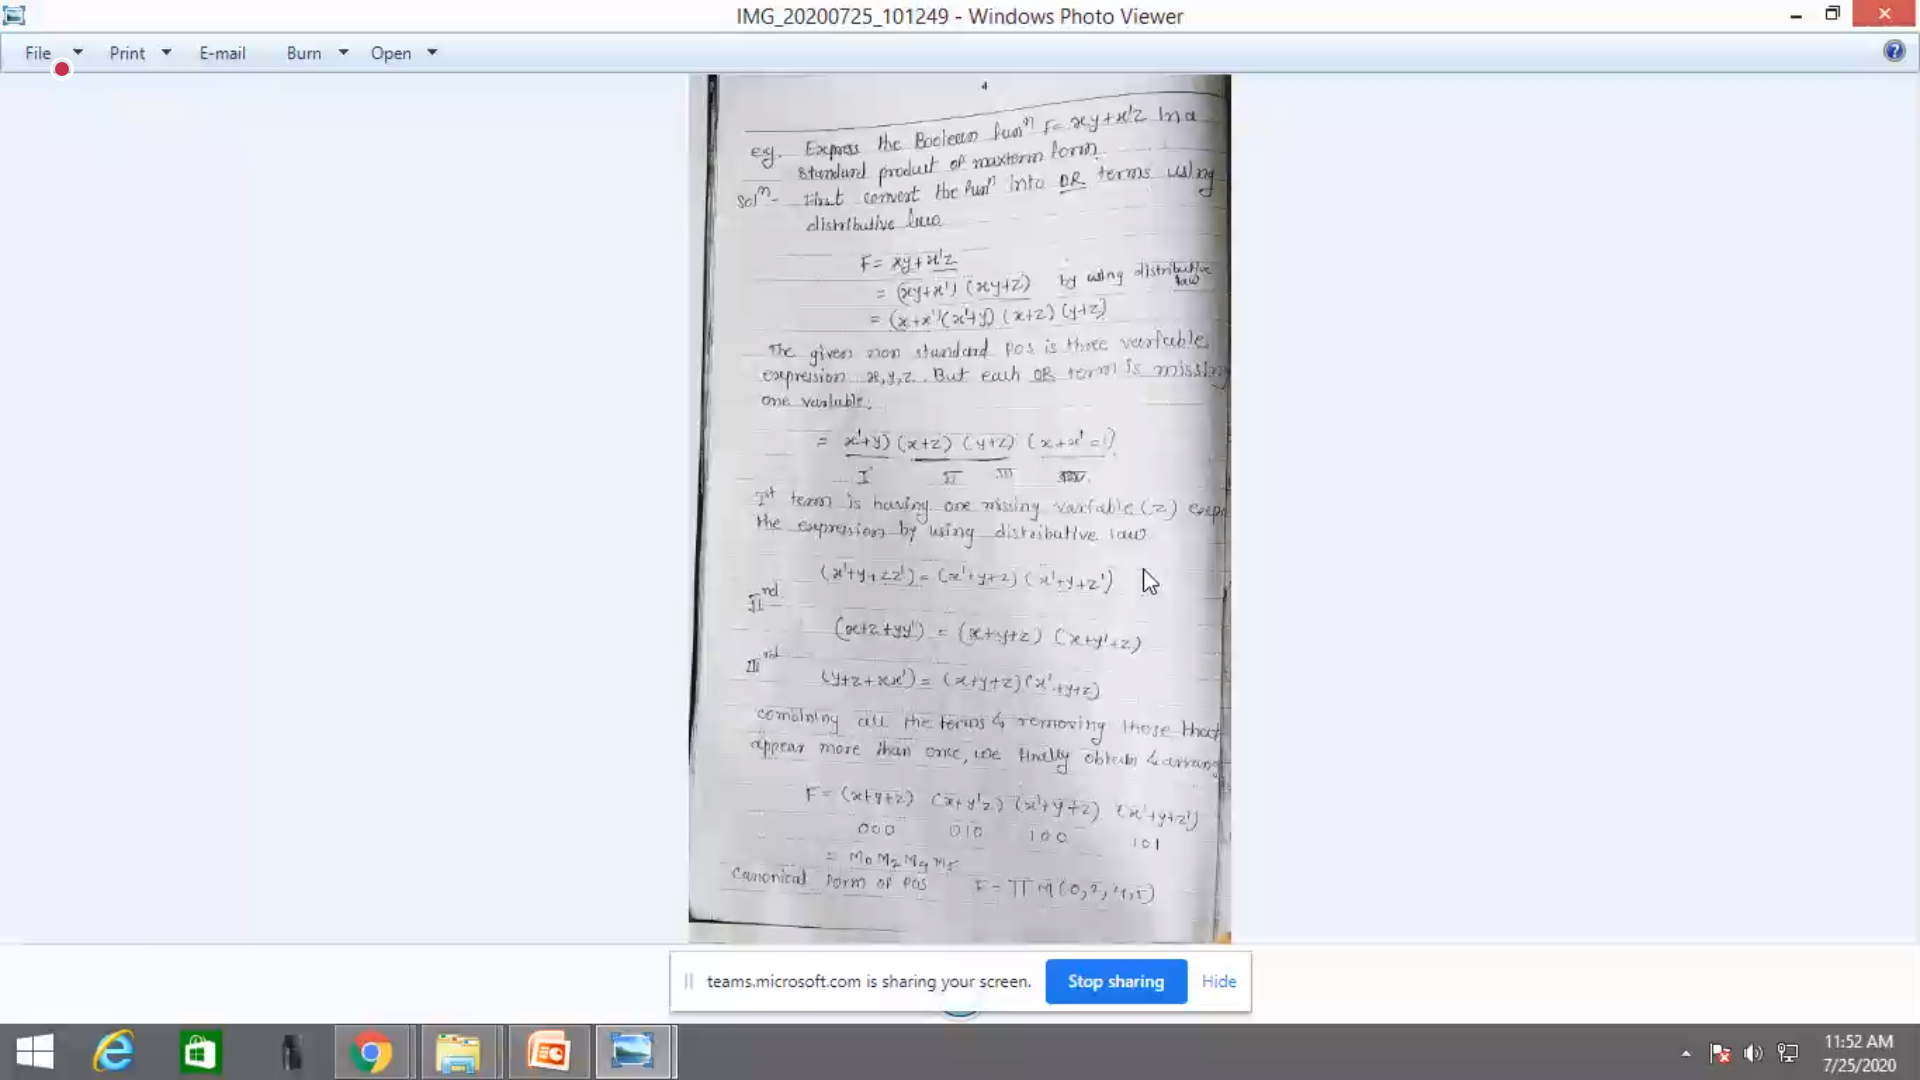 IMG_20200725_101249 - Windows Photo Viewer
File Print E-mail Burn Open
4
e.g. Express the Boolean funⁿ F= xy+x'z in a
standard product of maxterm form.
Solⁿ- First convert the funⁿ into OR terms using
distributive law
F= xy+x'z
= (xy+x') (xy+z) by using distributive law
= (x+x')(x'+y) (x+z) (y+z)
The given non standard POS is three variable
expression x,y,z. But each OR term is missing
one variable.
= x'+y) (x+z) (y+z) (x+x'=1)
I II III
Ist term is having one missing variable (z)
the expression by using distributive law
(x'+y+zz') = (x'+y+z) (x'+y+z')
IInd
(x+z+yy') = (x+y+z) (x+y'+z)
IIIrd
(y+z+xx') = (x+y+z)(x'+y+z)
combining all the terms & removing those that
appear more than once, we finally obtain &
F= (x+y+z) (x+y'z) (x'+y+z) (x'+y+z')
000 010 100 101
= M0 M2 M4 M5
Canonical form of POS F= ΠM(0,2,4,5)
teams.microsoft.com is sharing your screen. Stop sharing Hide
11:52 AM
7/25/2020